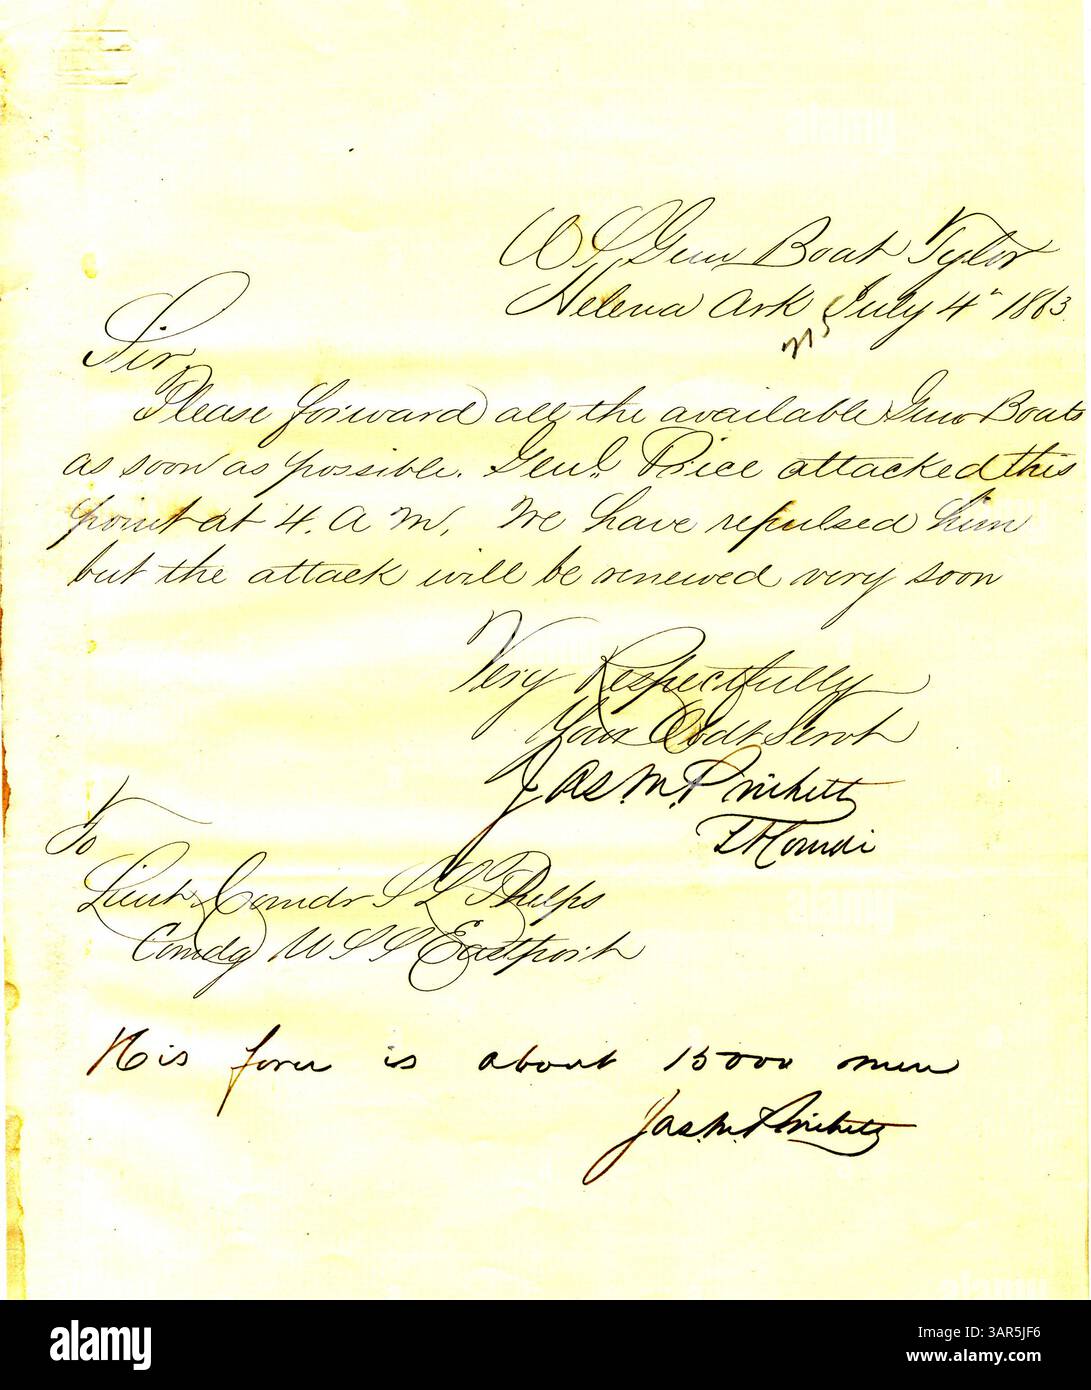 U S Gun Boat Tylor
Helena Ark July 4" 1863
Sir
Please forward all the available Gun Boats
as soon as possible. Genl. Price attacked this
point at 4. A M. We have repulsed him
but the attack will be renewed very soon
Very Respectfully
Your Obdt Servt
Jas. M. Prichett
Lt Comdr
To
Lieut Comdr S L Phelps
Comdg U S S Eastport
His force is about 15000 men
Jas. M. Prichett
alamy
Image ID: 3AR5JF6
www.alamy.com